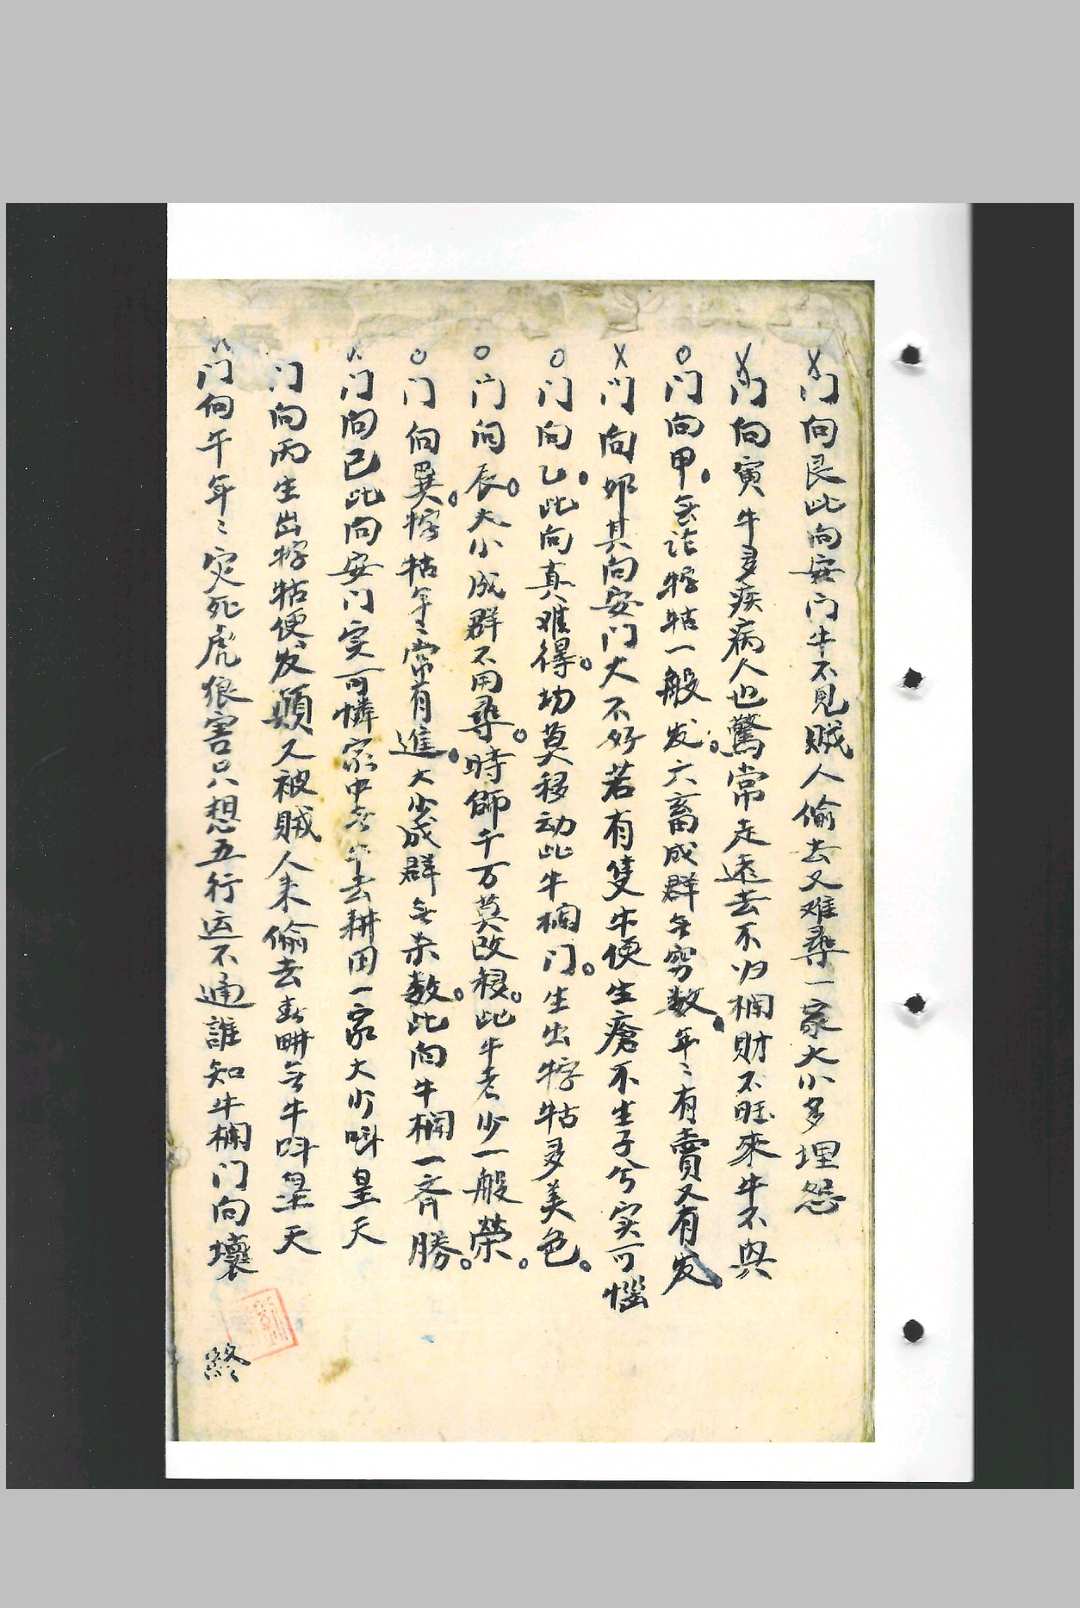 X门向艮此向安门牛不見賊人偷去又难尋一家大小多埋怨
X门向寅牛多疾病人也驚常走遠去不归栏財不旺來牛不與
○门向甲。无论牸牯一般发。六畜成群无穷数。年〻有賣又有发。
X门向卯其向安门大不好若有隻牛便生瘡不生子兮实可惱
○门向乙。此向真难得。切莫移动此牛栏门。生出牸牯多美色。
○门向辰。大小成群不用尋。時師千万莫改移。此牛老少一般榮。
○门向巽。牸牯年〻常有進。大少成群无末数。此向牛栏一齐勝。
门向巳此向安门实可憐家中无牛去耕田一家大少呌皇天
门向丙生出牸牯便发顛又被賊人来偷去耕无牛呌皇天
门向午年〻灾死虎狼害只想五行运不通誰知牛栏门向壞
終